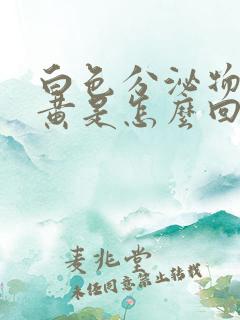 白色分泌物
黄是怎麼回
麦兆堂
未任同意禁止转载